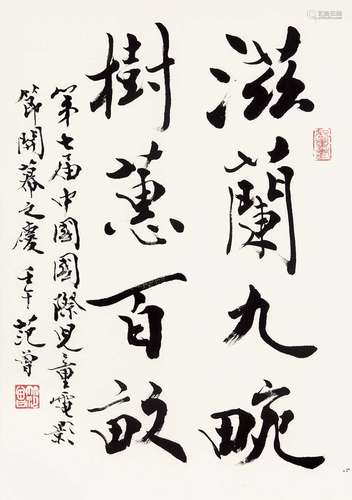 滋蘭九畹
樹蕙百畝
第七届中國國際児童電影
節開幕之慶 壬午 范曾